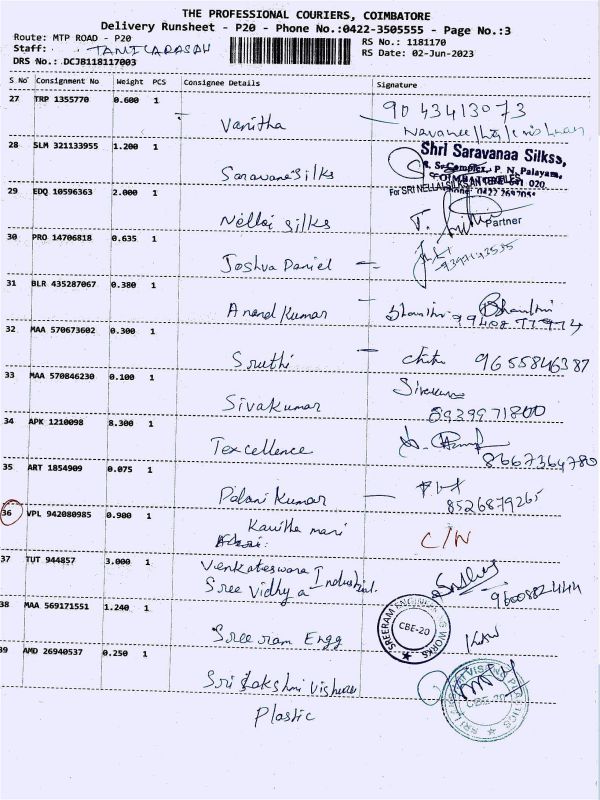 THE PROFESSIONAL COURIERS, COIMBATORE
Delivery Runsheet - P20 - Phone No.:0422-3505555 - Page No.:3
Route: MTP ROAD - P20
RS No.: 1181170
Staff: TAMILARASAN
RS Date: 02-Jun-2023
DRS No.: DCJB118117003
S No Consignment No Weight PCS Consignee Details Signature
27 TRP 1355770 0.600 1 Vanitha 9043413073
28 SLM 321133955 1.200 1 Saravana silks
Shri Saravanaa Silkss,
P. N. Palayam,
29 EDQ 10596363 2.000 1 Nellai silks
For SRI NELLAI SILKS
Partner
30 PRO 14706818 0.635 1 Joshua Daniel
31 BLR 435287067 0.380 1 Anand Kumar
32 MAA 570673602 0.300 1 Sruthi 9655846387
33 MAA 570846230 0.100 1 Sivakumar Sivakumar
8939971800
34 APK 1210098 8.300 1 Texcellence
8667364780
35 ART 1854909 0.075 1 Palani Kumar
8526879265
36 VPL 942080985 0.900 1 Kavitha mani C/N
37 TUT 944857 3.000 1 Venkateswara Industrial.
Sree Vidhya
9600882444
38 MAA 569171551 1.240 1 Sree ram Engg
SREERAM ENGINEERING WORKS
CBE-20
39 AMD 26940537 0.250 1 Sri Lakshmi Vishnu
Plastic
CBE-20